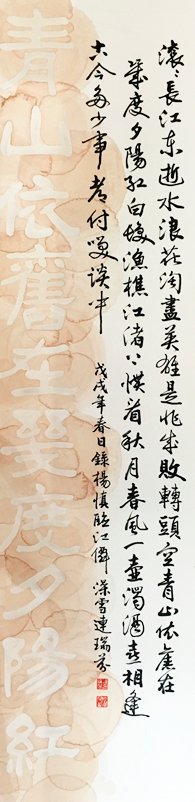 滾〻長江东逝水浪花淘盡英雄是非成敗轉頭空青山依舊在
幾度夕陽紅白髮漁樵江渚上慣看秋月春風一壺濁酒喜相逢
古今多少事都付笑談中
戊戌年春日錄楊慎臨江僊 澡雪連瑞芬
青山依舊在幾度夕陽紅